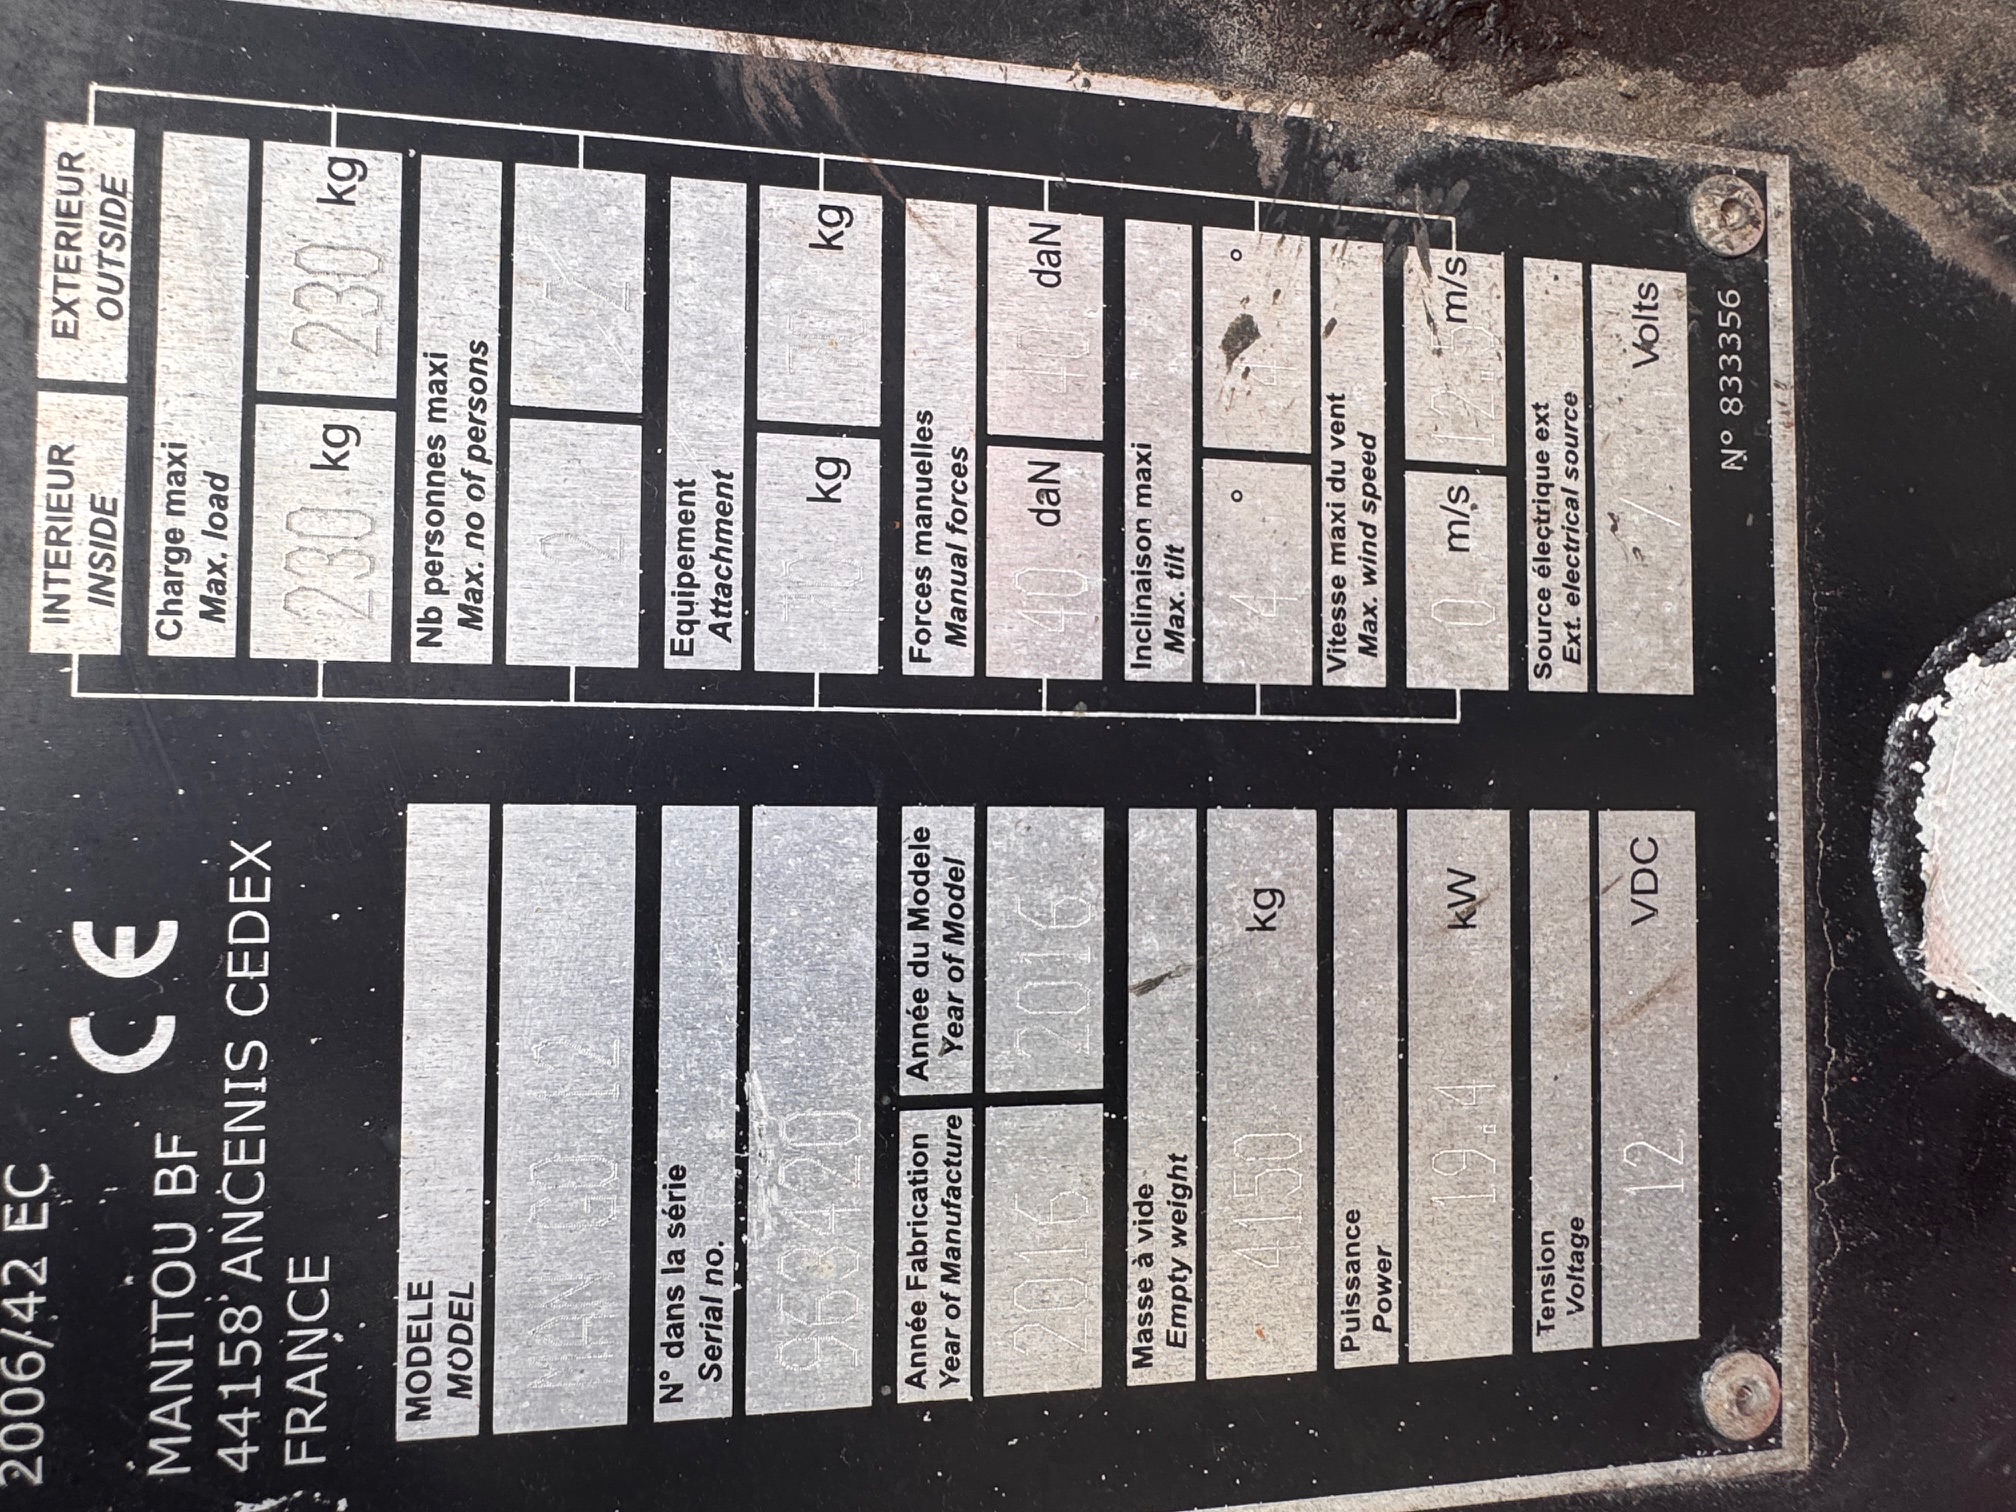 2006/42 EC
MANITOU BF
44158 ANCENIS CEDEX
FRANCE
CE
MODELE
MODEL
MANGO 12
N° dans la série
Serial no.
968420
Année Fabrication
Year of Manufacture
2016
Année du Modele
Year of Model
2016
Masse à vide
Empty weight
4150 kg
Puissance
Power
19.4 kW
Tension
Voltage
12 VDC
INTERIEUR
INSIDE
EXTERIEUR
OUTSIDE
Charge maxi
Max. load
230 kg 230 kg
Nb personnes maxi
Max. no of persons
2
Equipement
Attachment
70 kg 70 kg
Forces manuelles
Manual forces
40 daN 40 daN
Inclinaison maxi
Max. tilt
4 ° 4 °
Vitesse maxi du vent
Max. wind speed
0 m/s 12.5 m/s
Source électrique ext
Ext. electrical source
/ Volts
N° 833356